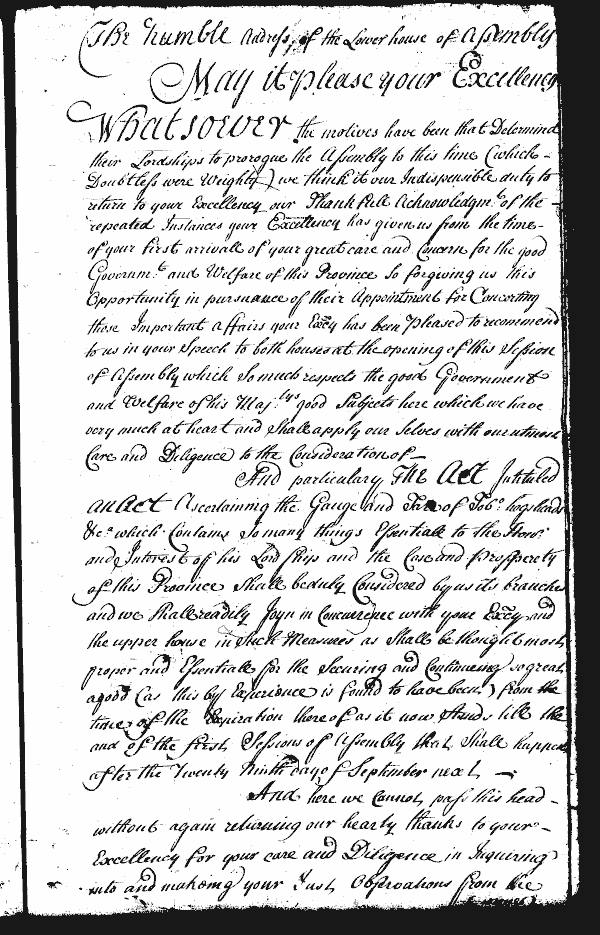 The humble Address, of the Lower house of Assembly
May it please your Excellency
Whatsoever the motives have been that Determind
their Lordships to prorogue the Assembly to this time (which
Doubtless were Weighty) we think it our Indispensible duty to
return to your Excellency our Thankfull Acknowledgm.ts of the
repeated Instances your Excellency has given us from the time
of your first arrivale of your great care and Concern for the good
Governm.t and Welfare of this Province So for giving us this
Opportunity in pursuance of their Appointment for Concerting
those Important affairs your Excy has been Pleased to recommend
to us in your Speech to both houses at the opening of this Session
of Assembly which So much respects the good Government
and Welfare of his Maj.tys good Subjects here which we have
very much at heart and Shall apply our Selves with our utmost
Care and Diligence to the Consideration of
And particularly THE Act Intituled
an Act Ascertaining the Gauge and Tare of Tob.o hogsheads
&c.a which Contains So many things Essentiall to the Hono.r
and Interest of his Lordships and the Case and Prosperety
of this Province Shall be duly Considered by us its branches
and we Shall readily Joyn in Concurrence with your Excy and
the upper house in Such Measures as Shall be thought most
proper and Essentiall for the Securing and Continueing so great
a good (as this by Experience is found to have been) from the
time of the Expiration thereof as it now Stands till the
end of the first Sessions of Assembly that Shall happen
after the Twenty Ninth day of September next
And here we Cannot pass this head
without again returning our hearty thanks to your
Excellency for your care and Diligence in Inquiring
into and making your Just Observations from the